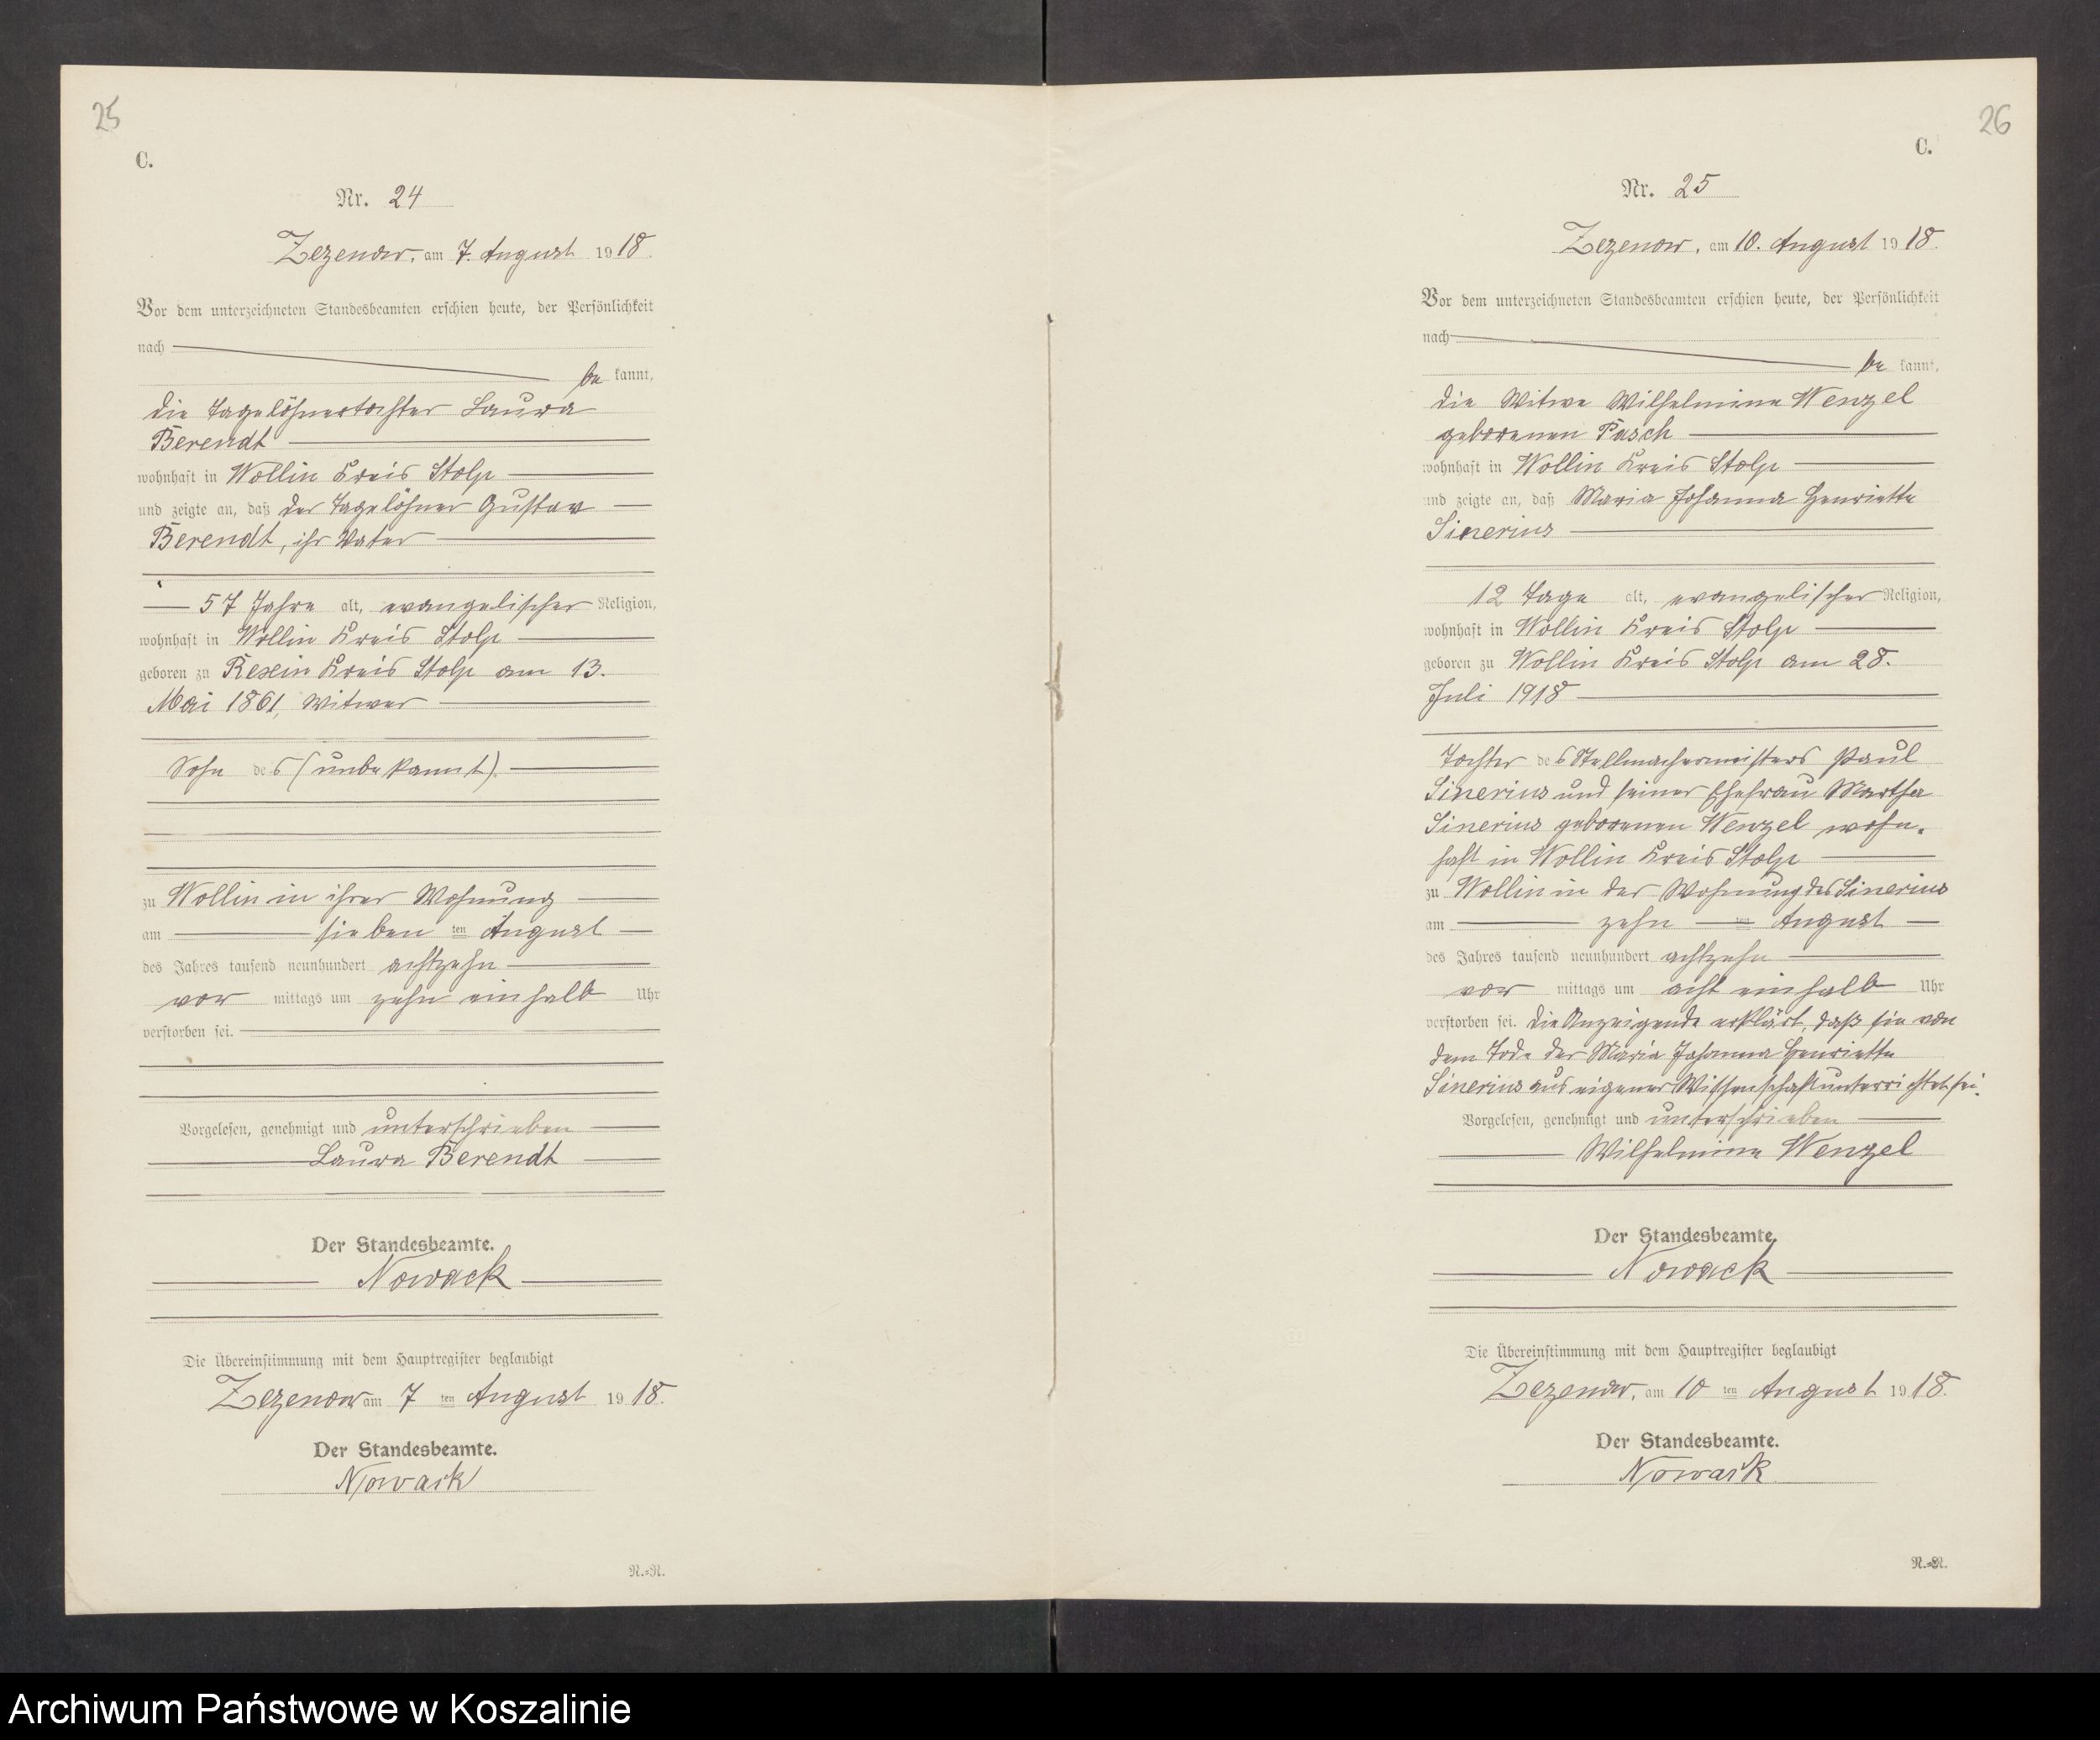 25
C.
Nr. 24
Zezenow, am 7. August 1918.
Vor dem unterzeichneten Standesbeamten erschien heute, der Persönlichkeit
nach
be kannt,
die Tagelöhnertochter Laura
Berendt
wohnhaft in Wollin Kreis Stolp
und zeigte an, daß der Tagelöhner Gustav
Berendt, ihr Vater
57 Jahre alt, evangelischer Religion,
wohnhaft in Wollin Kreis Stolp
geboren zu Rexin Kreis Stolp am 13.
Mai 1861, Witwer
Sohn des (unbekannt).
zu Wollin in ihrer Wohnung
am sieben ten August
des Jahres tausend neunhundert achtzehn
vor mittags um zehn einhalb Uhr
verstorben sei.
Vorgelesen, genehmigt und unterschrieben
Laura Berendt
Der Standesbeamte.
Nowack
Die Übereinstimmung mit dem Hauptregister beglaubigt
Zezenow am 7 ten August 1918.
Der Standesbeamte.
Nowack
N.=N.
26
C.
Nr. 25
Zezenow, am 10. August 1918.
Vor dem unterzeichneten Standesbeamten erschien heute, der Persönlichkeit
nach
be kannt,
die Witwe Wilhelmine Wenzel
geborenen Pasch
wohnhaft in Wollin Kreis Stolp
und zeigte an, daß Maria Johanna Henriette
Sinerius
12 Tage alt, evangelischer Religion,
wohnhaft in Wollin Kreis Stolp
geboren zu Wollin Kreis Stolp am 28.
Juli 1918
Tochter des Stellmachermeisters Paul
Sinerius und seiner Ehefrau Martha
Sinerius geborenen Wenzel wohn-
haft in Wollin Kreis Stolp
zu Wollin in der Wohnung des Sinerius
am zehn ten August
des Jahres tausend neunhundert achtzehn
vor mittags um acht einhalb Uhr
verstorben sei. Die Anzeigende erklärt, daß sie von
dem Tode der Maria Johanna Henriette
Sinerius aus eigener Wissenschaft unterrichtet sei.
Vorgelesen, genehmigt und unterschrieben
Wilhelmine Wenzel
Der Standesbeamte.
Nowack
Die Übereinstimmung mit dem Hauptregister beglaubigt
Zezenow, am 10 ten August 1918.
Der Standesbeamte.
Nowack
N.=N.
Archiwum Państwowe w Koszalinie